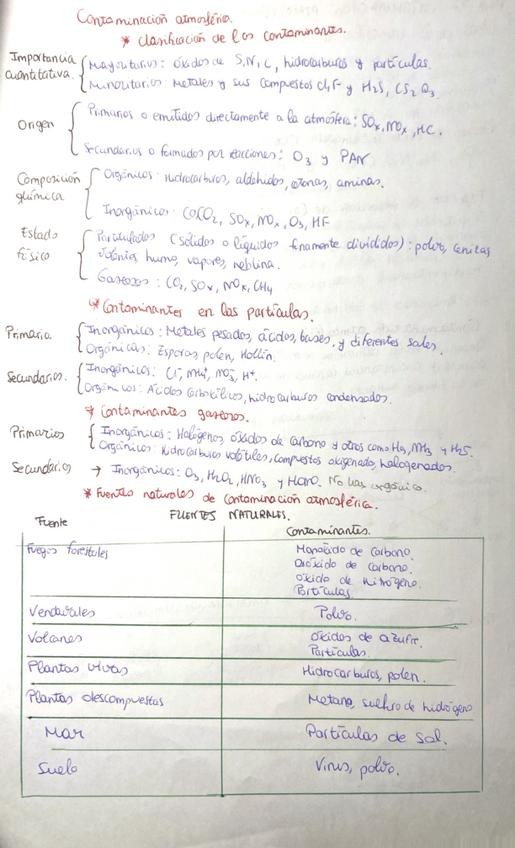 Contaminación atmosférica.
* Clasificación de los contaminantes.
Importancia cuantitativa
Mayoritarios: óxidos de S, N, C, hidrocarburos y partículas.
Minoritarios: Metales y sus compuestos Cl, F- y H2S, CS2 O3
Origen
Primarios o emitidos directamente a la atmósfera: SOx, NOx, HC.
Secundarios o formados por reacciones: O3 y PAN
Composición química
Orgánicos: Hidrocarburos, aldehidos, cetonas, aminas.
Inorgánicos: CO, CO2, SOx, NOx, O3, HF
Estado físico
Particulados (sólidos o líquidos finamente divididos): polvo, cenizas
volantes humo, vapores, neblina.
Gaseosos: CO2, SOx, NOx, CH4
* Contaminantes en las partículas.
Primaria
Inorgánicos: Metales pesados, ácidos, bases, y diferentes sales.
Orgánicas: Esporas polen, Hollín.
Secundarios.
Inorgánicos: Cl-, NH4+, NO3-, H+.
Orgánicos: Ácidos carboxílicos, hidrocarburos condensados.
* Contaminantes gaseosos.
Primarios
Inorgánicos: Halógenos óxidos de carbono y otros como NH3 y H2S.
Orgánicos: Hidrocarburos volátiles, compuestos oxigenado, halogenados.
Secundarios → Inorgánicos: O3, H2O2, HNO3 y No hay orgánico.
* Fuentes naturales de contaminación atmosférica.
FUENTES NATURALES.
Fuente
Contaminantes.
Fuegos forestales
Monóxido de Carbono.
Dióxido de Carbono.
Óxido de nitrógeno.
Partículas
Vendavales
Polvo.
Volcanes
Óxidos de azufre.
Partículas.
Plantas vivas
Hidrocarburos, polen.
Plantas descompuestas
Metano, sulfuro de hidrógeno
Mar
Partículas de sal.
Suelo
Virus, polvo.